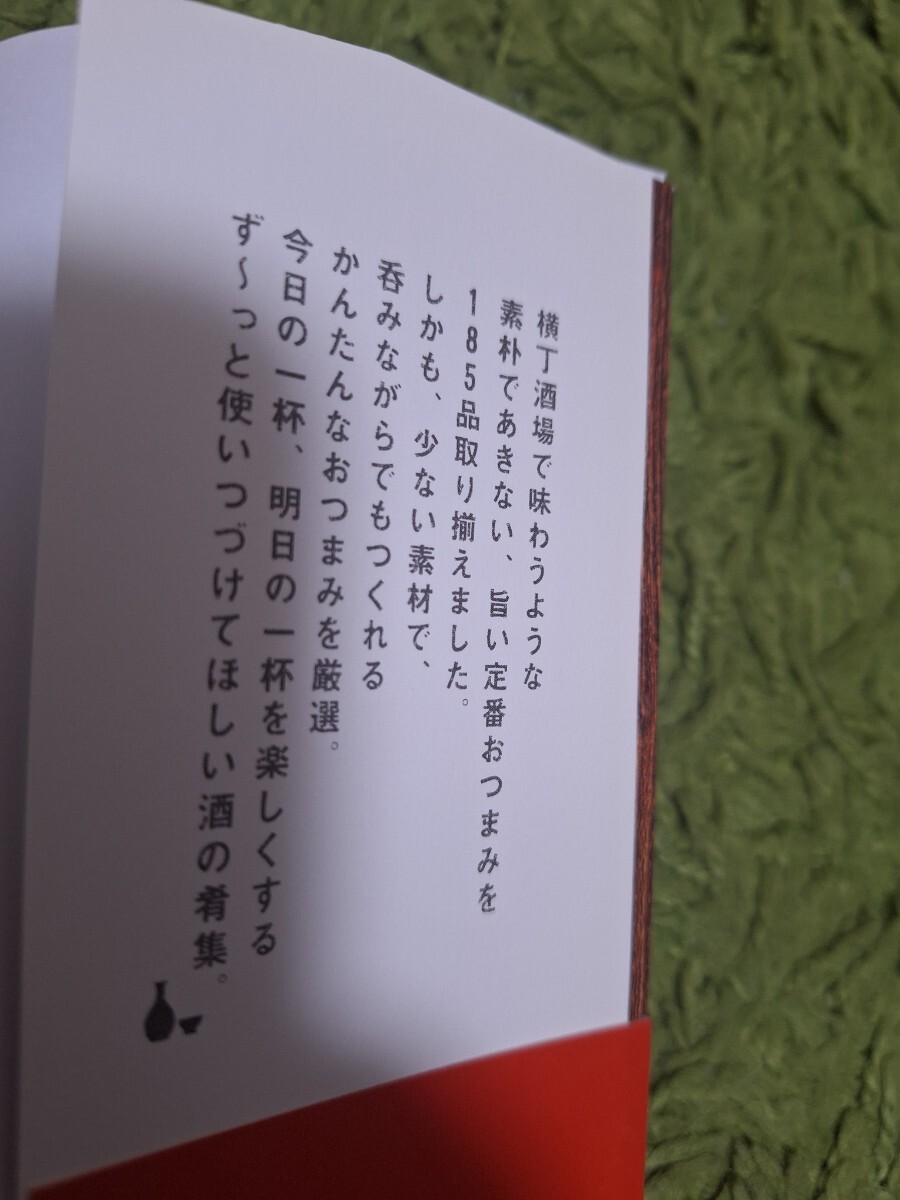 横丁酒場で味わうような
素朴であきない、旨い定番おつまみを
185品取り揃えました。
しかも、少ない素材で、
呑みながらでもつくれる
かんたんなおつまみを厳選。
今日の一杯、明日の一杯を楽しくする
ず〜っと使いつづけてほしい酒の肴集。